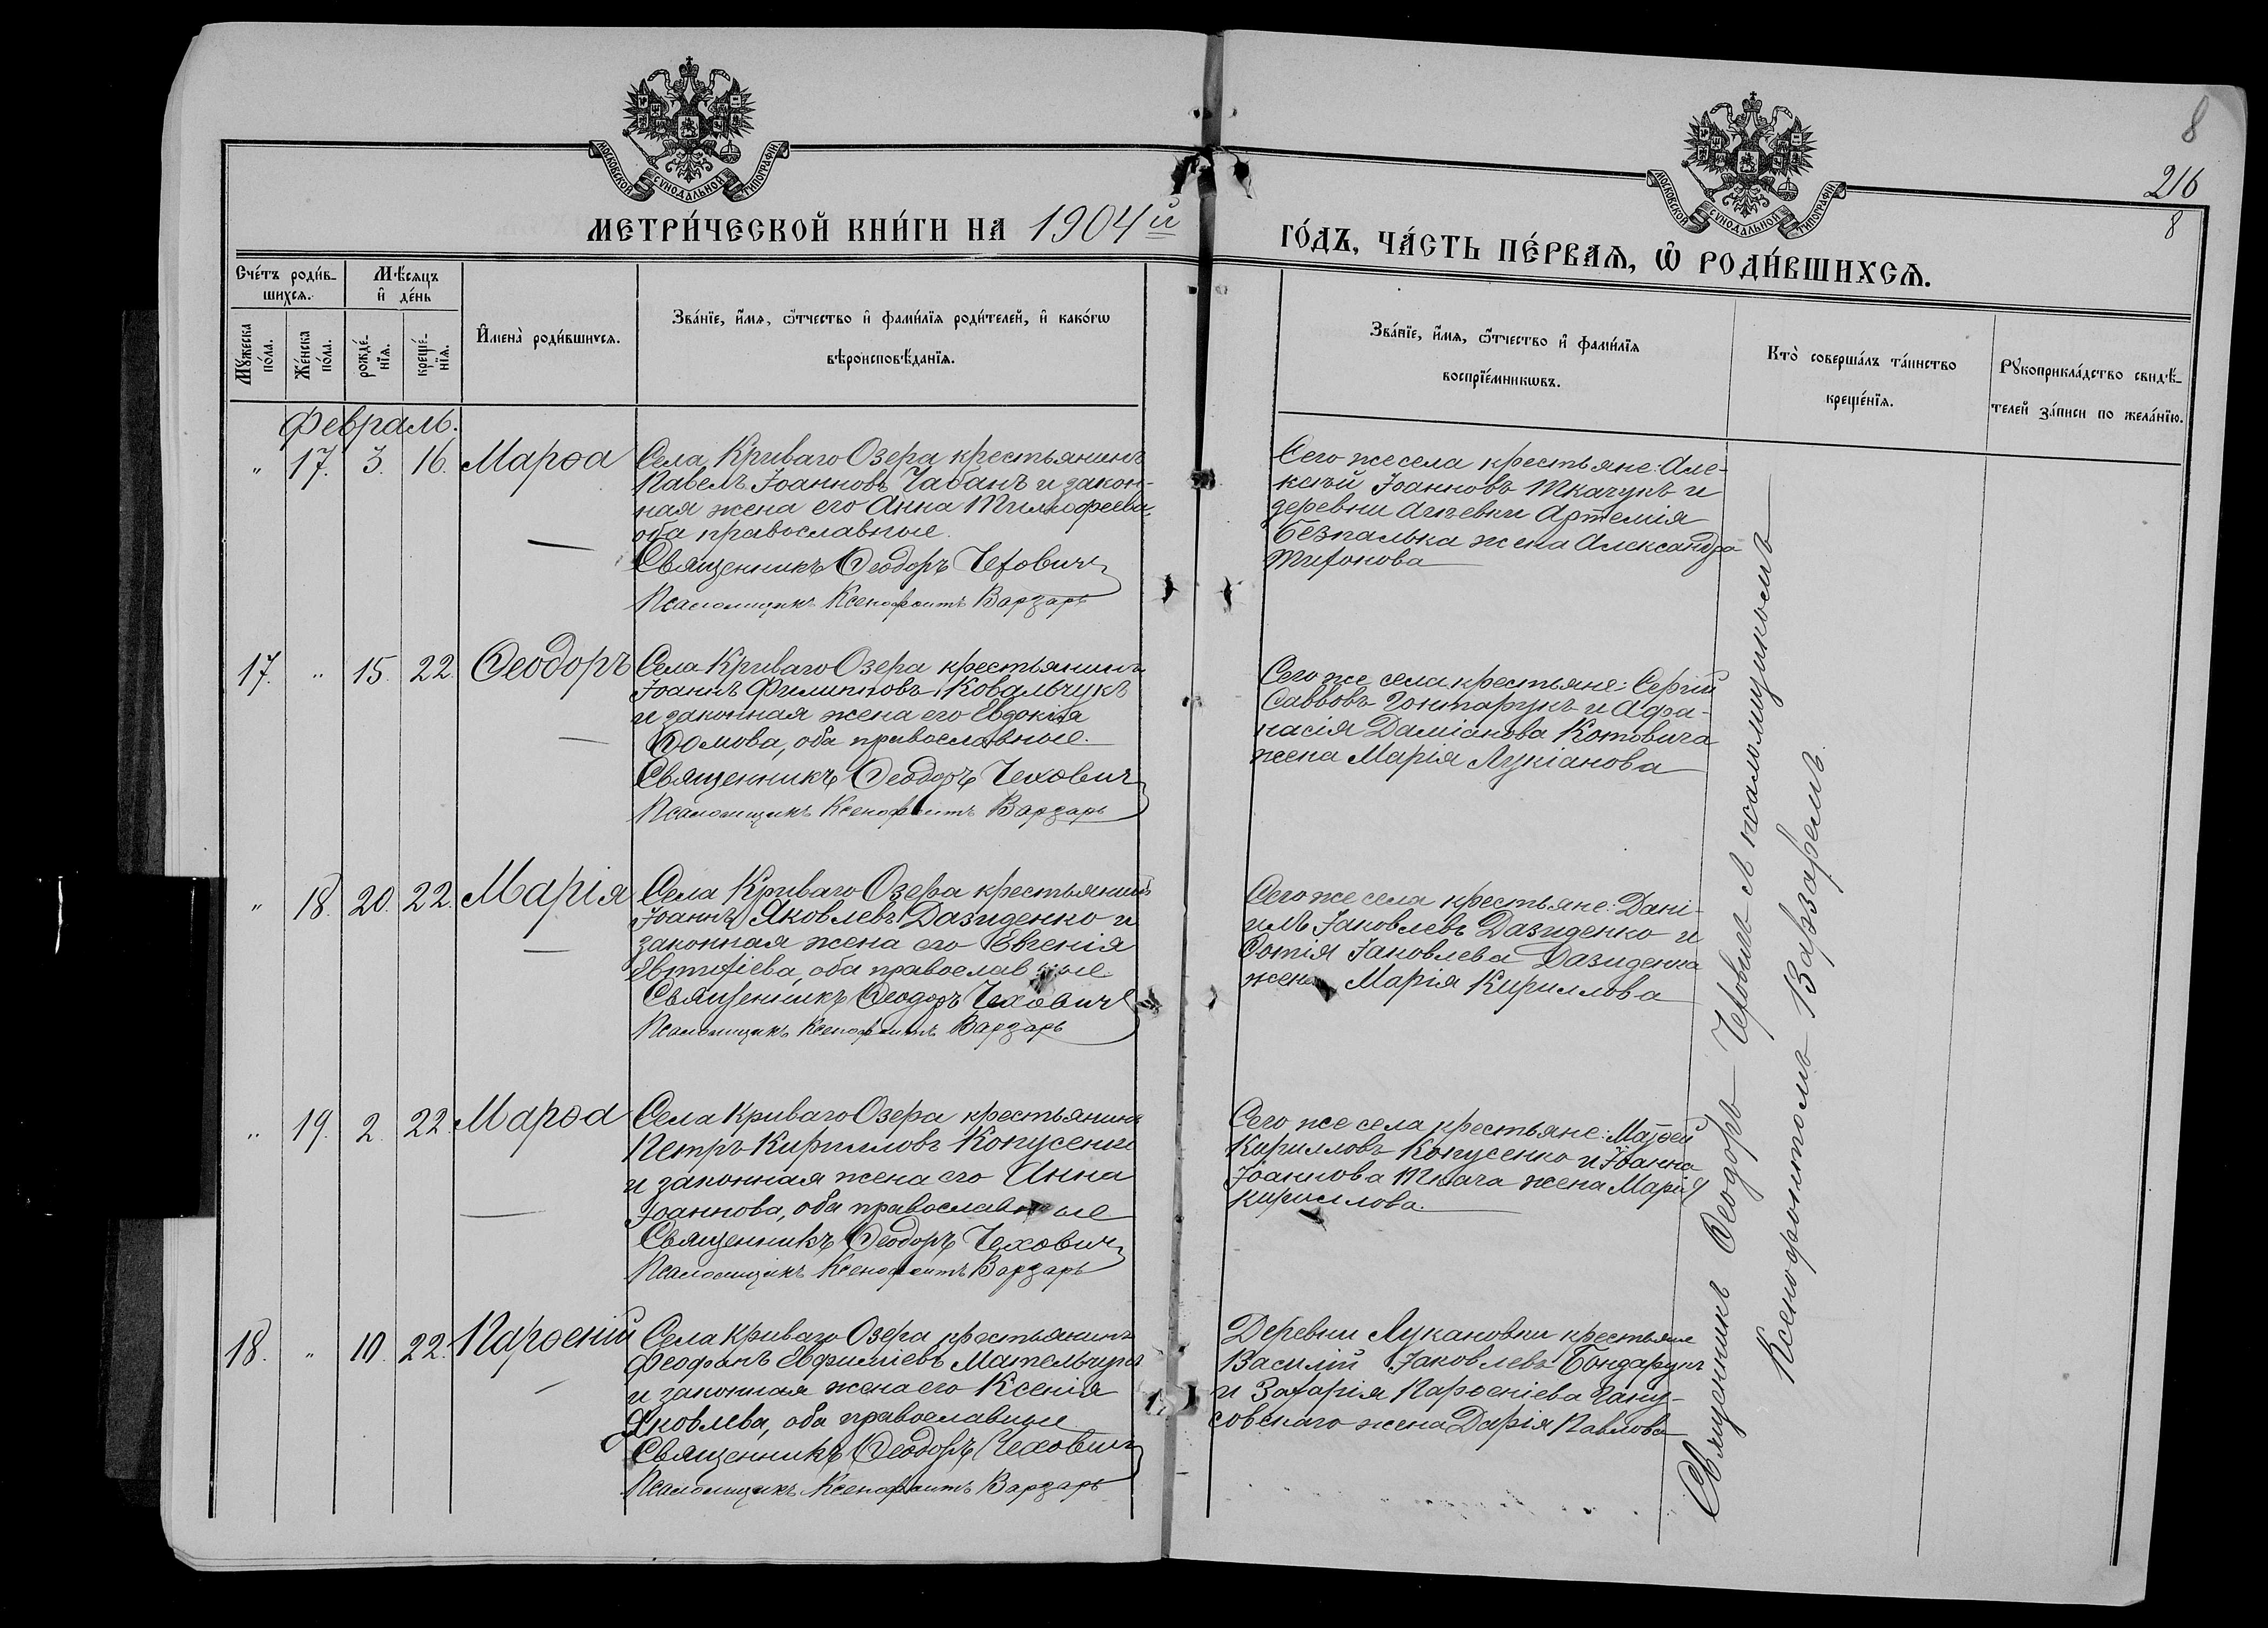 8
216
8
МОСКОВСКОЙ СѴНОДАЛЬНОЙ ТИПОГРАФІИ
МОСКОВСКОЙ СѴНОДАЛЬНОЙ ТИПОГРАФІИ
МЕТРИ́ЧЕСКОЙ КНИ́ГИ НА 1904й
ГО́ДЪ, ЧА́СТЬ ПЕ́РВАѦ, Ѽ РОДИ́ВШИХСѦ.
Сче́тъ роди́в-
шихсѧ.
Мѣ́сѧцъ
и҆ де́нь
Мꙋ́жеска
по́ла.
Же́нска
по́ла.
рожде́-
нїѧ.
креще́-
нїѧ.
И҆мена̀ роди́вшихсѧ.
Зва́нїе, и҆́мѧ, ѻ҆́тчество и҆ фами́лїѧ роди́телей, и҆ како́гѡ
вѣроисповѣ́данїѧ.
Зва́нїе, и҆́мѧ, ѻ҆́тчество и҆ фами́лїѧ
воспрїе́мникѡвъ.
Кто̀ соверша́лъ та́инство
креще́нїѧ.
Рꙋкоприкла́дство свидѣ́-
телей за́писи по жела́нїю.
Февраль.
" 17. 3. 16. Марѳа
Села Криваго Озера крестьянинъ
Павелъ Іоанновъ Чабанъ и закон-
ная жена его Анна Тимофеева,
оба православные.
Священникъ Ѳеодоръ Чеховичъ
Псаломщикъ Ксенофонтъ Варзарь
Сего же села крестьяне: Але-
ксѣй Іоанновъ Ткачукъ и
деревни Артемія
Безпалька жена Александра
Тихонова
17. " 15. 22. Ѳеодоръ
Села Криваго Озера крестьянинъ
Іоаннъ Филипповъ Ковальчукъ
и законная жена его Евдокія
Ѳомова, оба православные.
Священникъ Ѳеодоръ Чеховичъ
Псаломщикъ Ксенофонтъ Варзарь
Сего же села крестьяне: Сергій
Саввовъ Гонтарукъ и Афа-
насія Даміанова Котовича
жена Марія Лукіанова
" 18. 20. 22. Марія
Села Криваго Озера крестьянинъ
Іоаннъ Яковлевъ Дазиденко и
законная жена его Евгенія
Евтихіева, оба православные.
Священникъ Ѳеодоръ Чеховичъ
Псаломщикъ Ксенофонтъ Варзарь
Сего же села крестьяне: Дані-
илъ Іаковлевъ Дазиденко и
Фотія Іаковлева Дазиденка
жена Марія Кириллова
" 19. 2. 22. Марѳа
Села Криваго Озера крестьянинъ
Петръ Кирилловъ Копусенко
и законная жена его Анна
Іоаннова, оба православные
Священникъ Ѳеодоръ Чеховичъ
Псаломщикъ Ксенофонтъ Варзарь
Сего же села крестьяне: Матѳей
Кирилловъ Копусенко и Іоанна
Іоаннова Ткача жена Марія
Кириллова.
18. " 10. 22. Парѳеній
Села Криваго Озера крестьянинъ
Феофанъ Евфиміевъ
и законная жена его Ксенія
Яковлева, оба православные
Священникъ Ѳеодоръ Чеховичъ
Псаломщикъ Ксенофонтъ Варзарь
Деревни Лукановки крестьяне
Василій Іаковлевъ Бондарукъ
и Захарія Парѳеніева
жена Дарія Павлова
Священникъ Ѳеодоръ Чеховичъ съ псаломщикомъ
Ксенофонтомъ Варзаремъ.